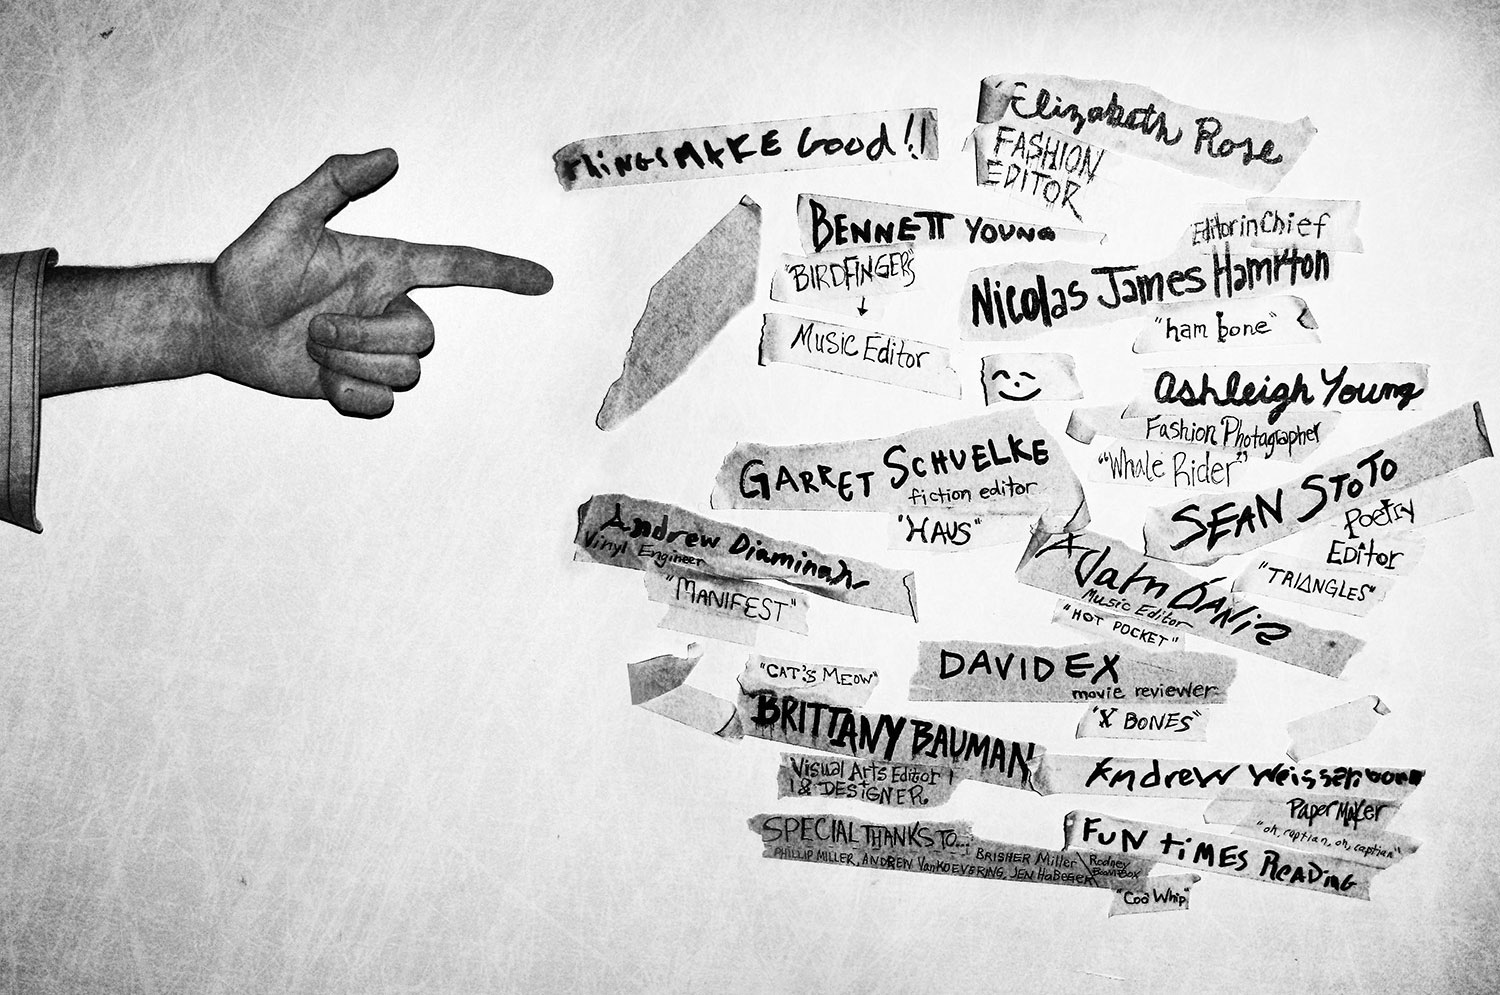 THINGS MAKE Good!!
Elizabeth Rose
FASHION
EDITOR
BENNETT YOUNG
"BIRDFINGERS"
Music Editor
Editor in Chief
Nicolas James Hampton
"ham bone"
Ashleigh Young
Fashion Photographer
"Whale Rider"
GARRET SCHUELKE
fiction editor
"HAUS"
SEAN STOTO
Poetry
EDitor
"TRIANGLES"
Andrew Diaminah
Vinyl Engineer
"MANIFEST"
Adam DANiS
Music Editor
"HOT POCKET"
DAVID EX
movie reviewer
"X BONES"
"CAT'S MEOW"
BRITTANY BAUMAN
Visual Arts Editor
& DESIGNER
Andrew
PAPER MAKER
"oh, captian, oh, captian"
SPECIAL THANKS TO...
PHILLIP MILLER, ANDREN VanKOEVERING, JEN HaBEGER
BRISHER Miller
Rodney
BoomBox
"Coa Whip"
FUN TIMES READING